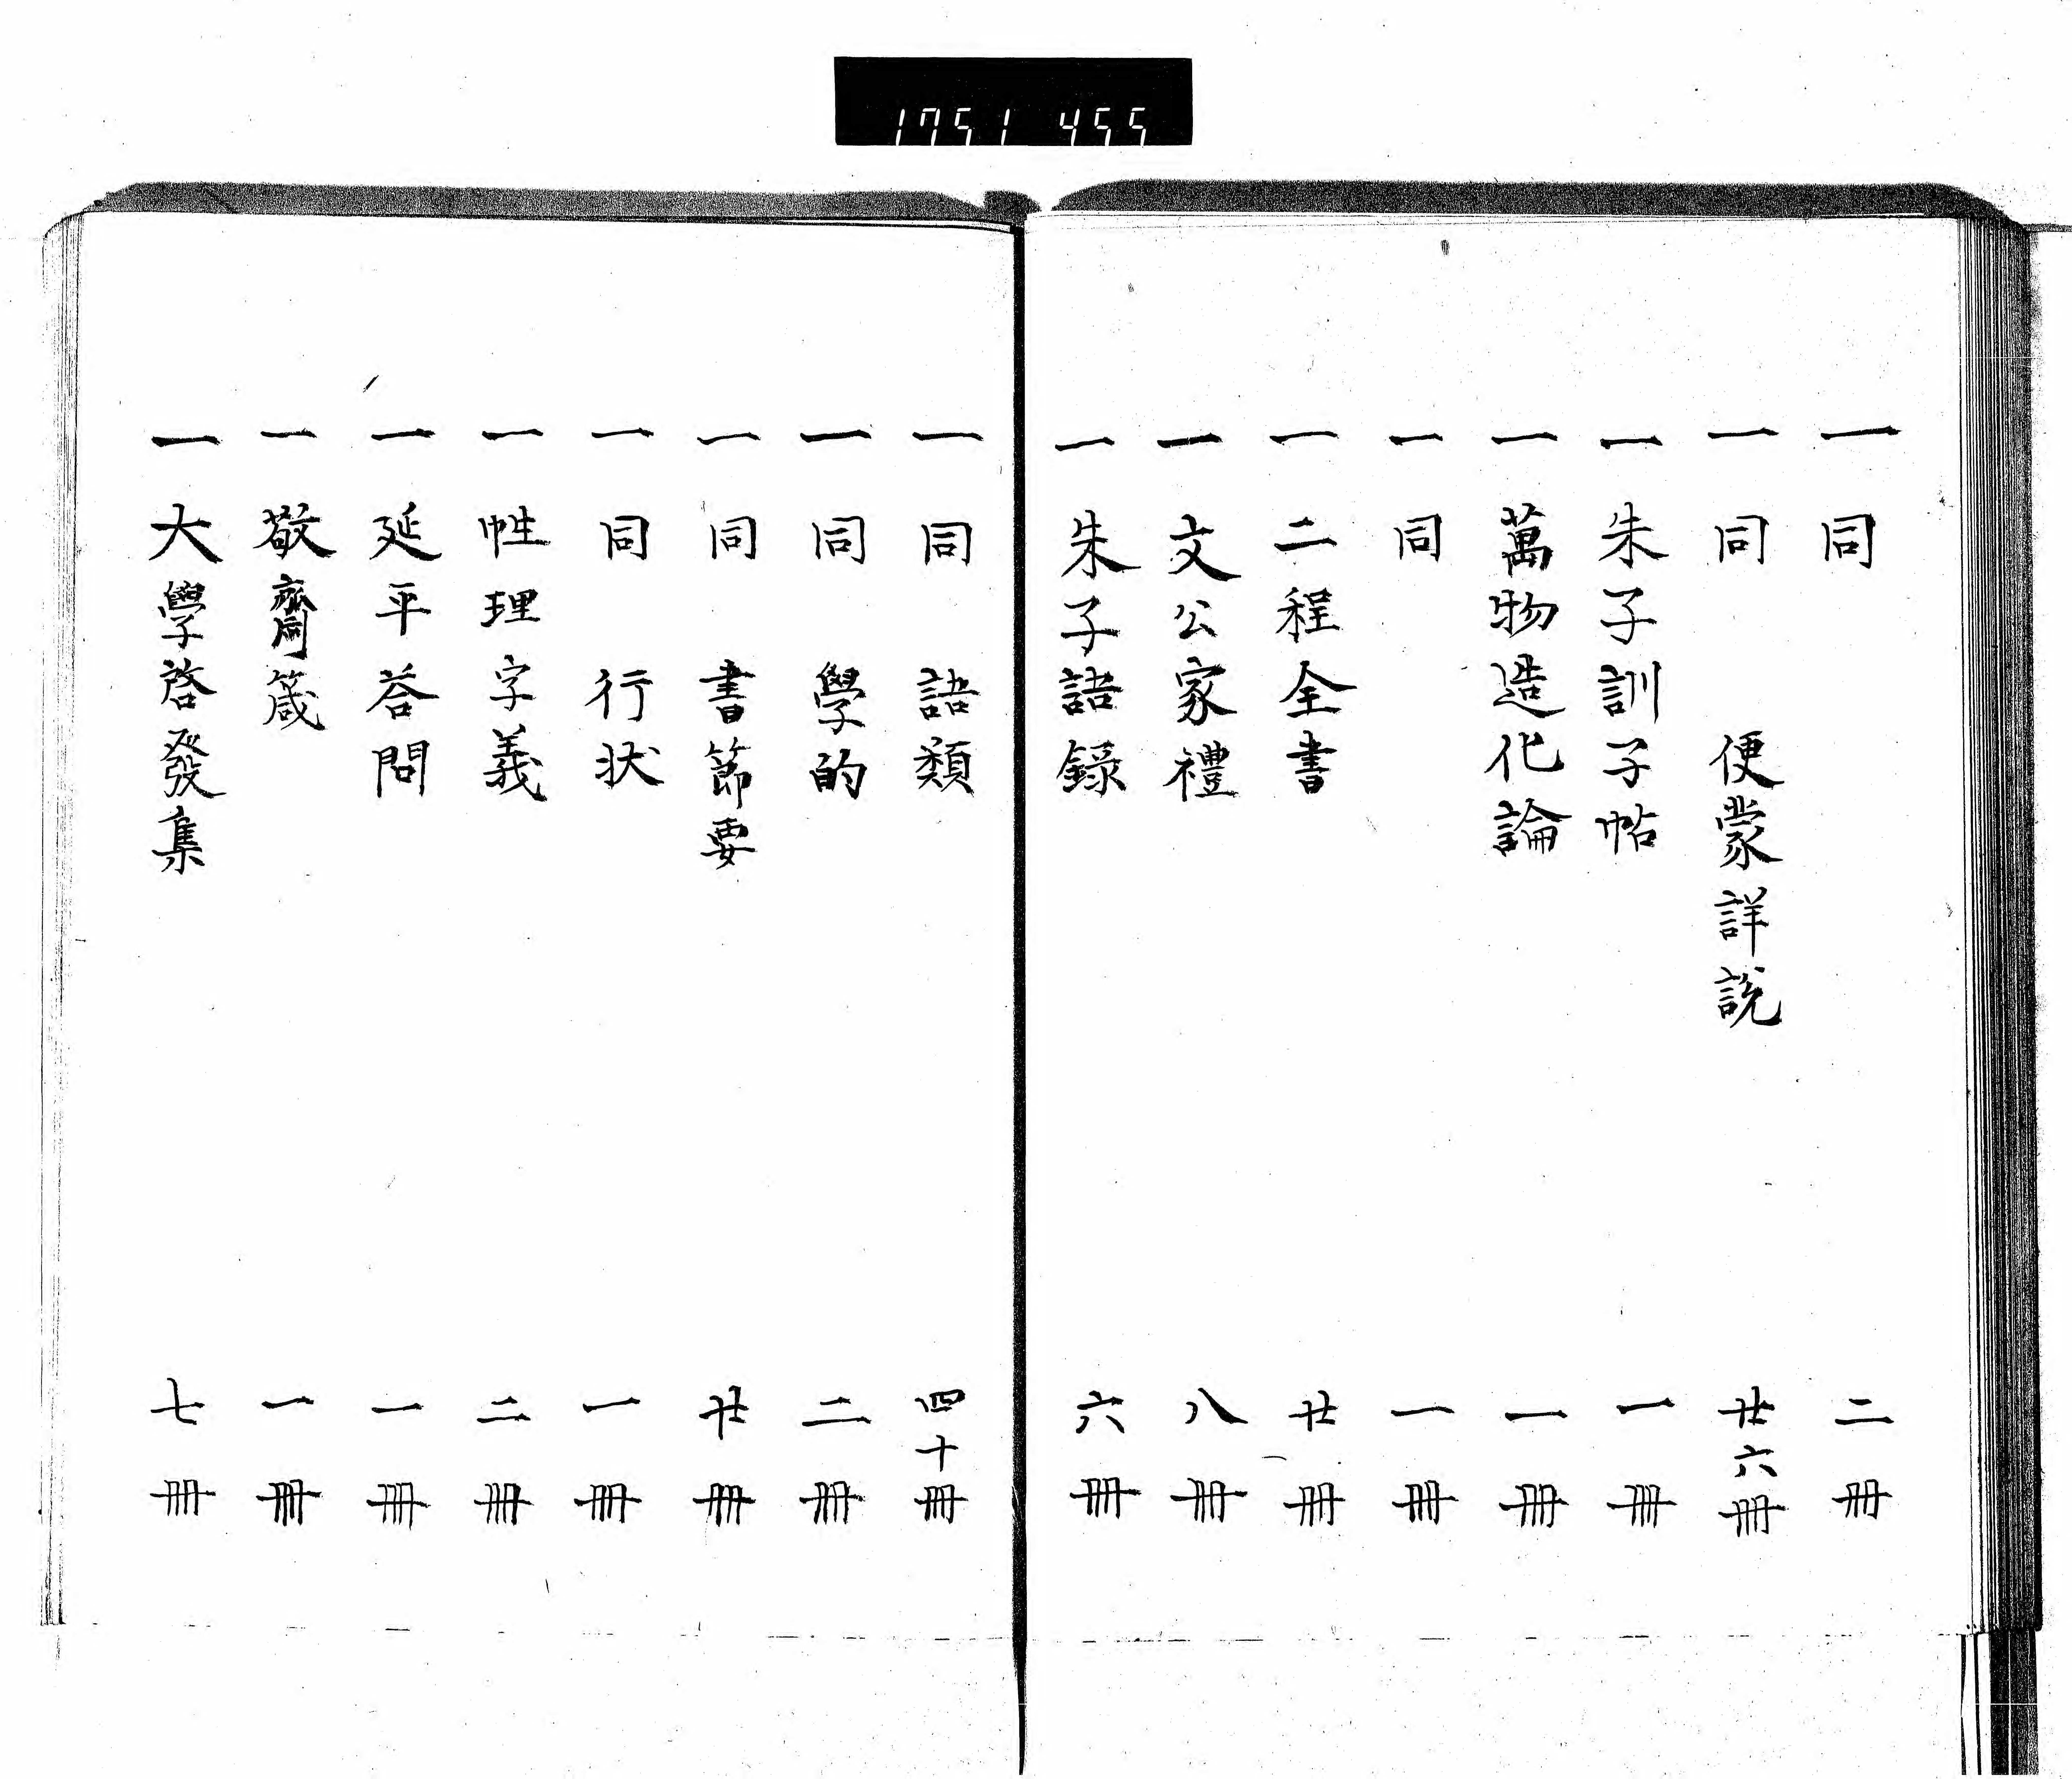 1751 455
一 同 二冊
一 同 便蒙詳說 廿六冊
一 朱子訓子帖 一冊
一 萬物造化論 一冊
一 同 一冊
一 二程全書 廿冊
一 文公家禮 八冊
一 朱子語錄 六冊
一 同 語類 四十冊
一 同 學的 二冊
一 同 書節要 廿冊
一 同 行状 一冊
一 性理字義 二冊
一 延平荅問 一冊
一 敬齋箴 一冊
一 大學啓發集 七冊